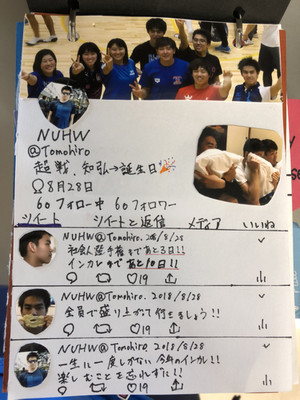 NUHW
@Tomohiro
超戦、知弘→誕生日
8月28日
60フォロー中 60フォロワー
ツイート ツイートと返信 メディア いいね
NUHW @Tomohiro. 2018/8/28
社会人選手権まであと3日!!
インカレまであと10日!!
19
NUHW @Tomohiro. 2018/8/28
全員で盛り上がって行きましょう!!
19
NUHW @Tomohiro. 2018/8/28
一生に一度しかない 今年のインカレ!!
楽しむことを忘れずに!!
19